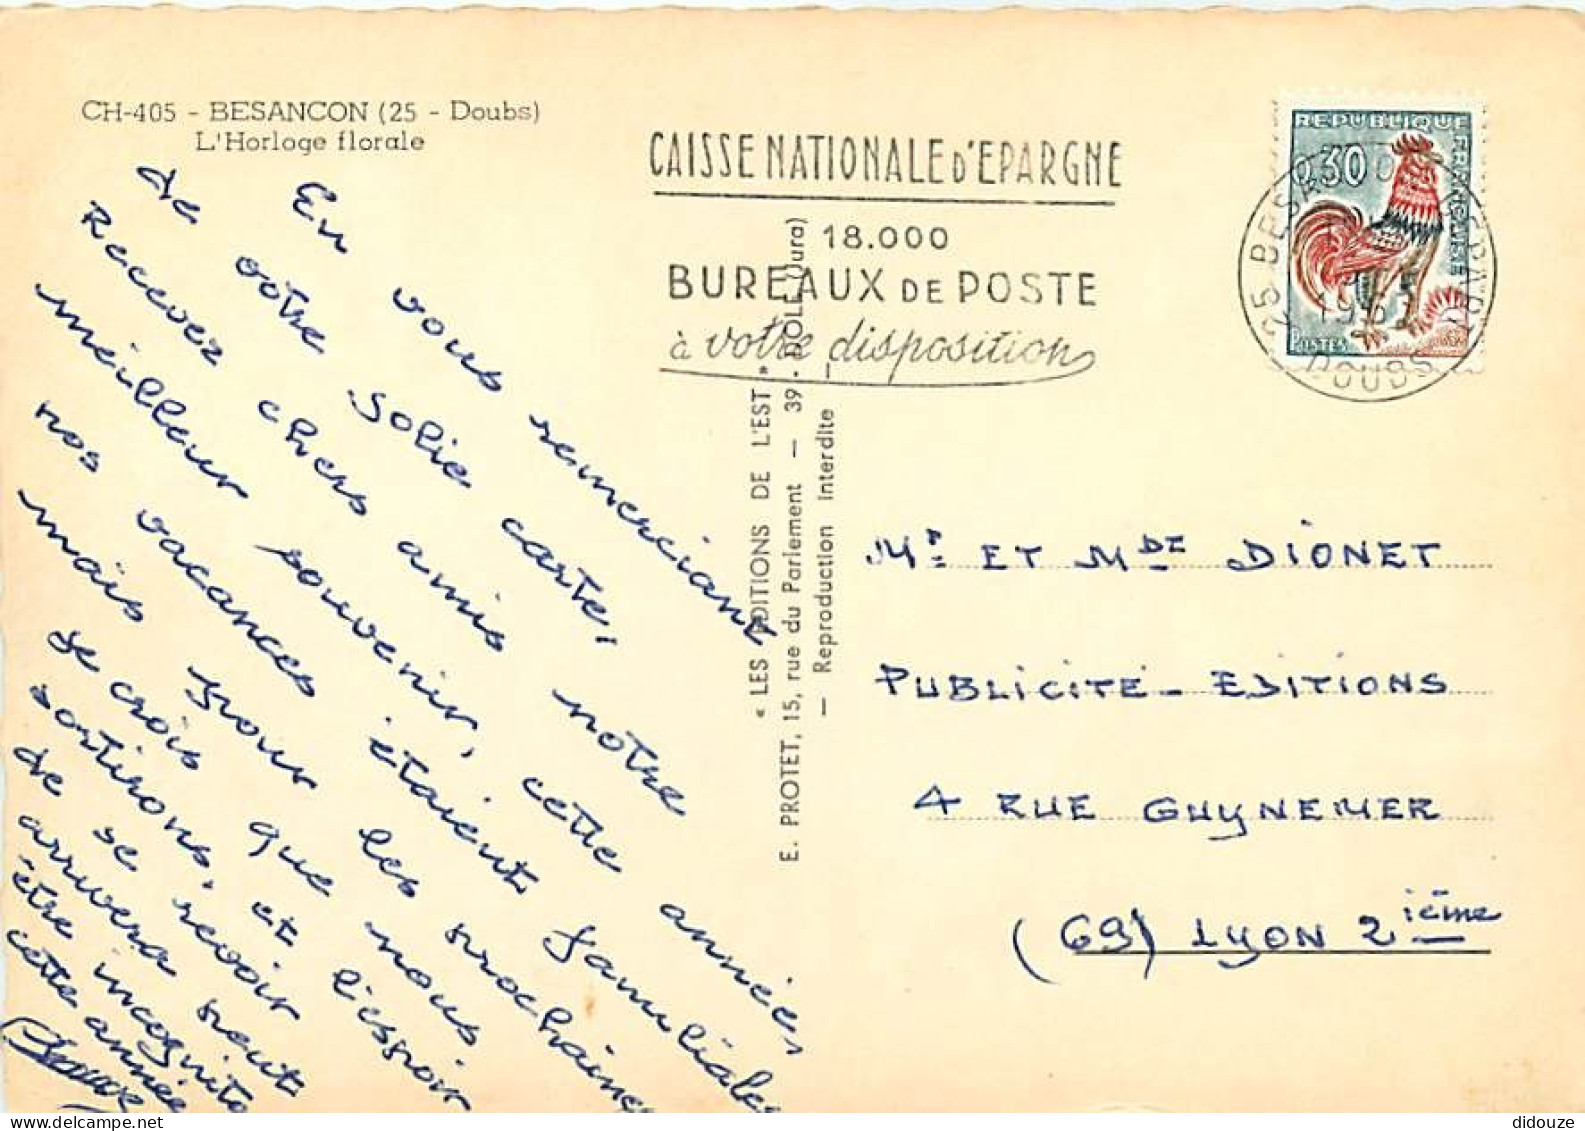 CH-405 - BESANCON (25 - Doubs)
L'Horloge florale
En vous remerciant
de votre jolie carte,
Recevez chers amis notre
meilleur souvenir, cette année,
nos vacances étaient familiales
mais pour les prochaines
je crois que nous
sortirons, et l'espoir
de se revoir
arrivera peut
être incognito
cette année
CAISSE NATIONALE D'EPARGNE
18.000
BUREAUX DE POSTE
à votre disposition
REPUBLIQUE FRANÇAISE
0,30
POSTES
25 BESANCON
DOUBS
« LES EDITIONS DE L'EST »
E. PROTET, 15, rue du Parlement — 39 - DOLE (Jura)
— Reproduction Interdite —
Mr ET Mde DIONET
PUBLICITE - EDITIONS
4 RUE GUYNEMER
(69) LYON 2ième
didouze